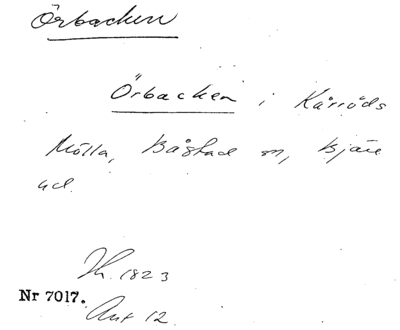 Örbacken
Örbacken i Kårröds
Mölla, Båstad sn, Bjäre
hd.
Th. 1823
Nr 7017.
Ant 12